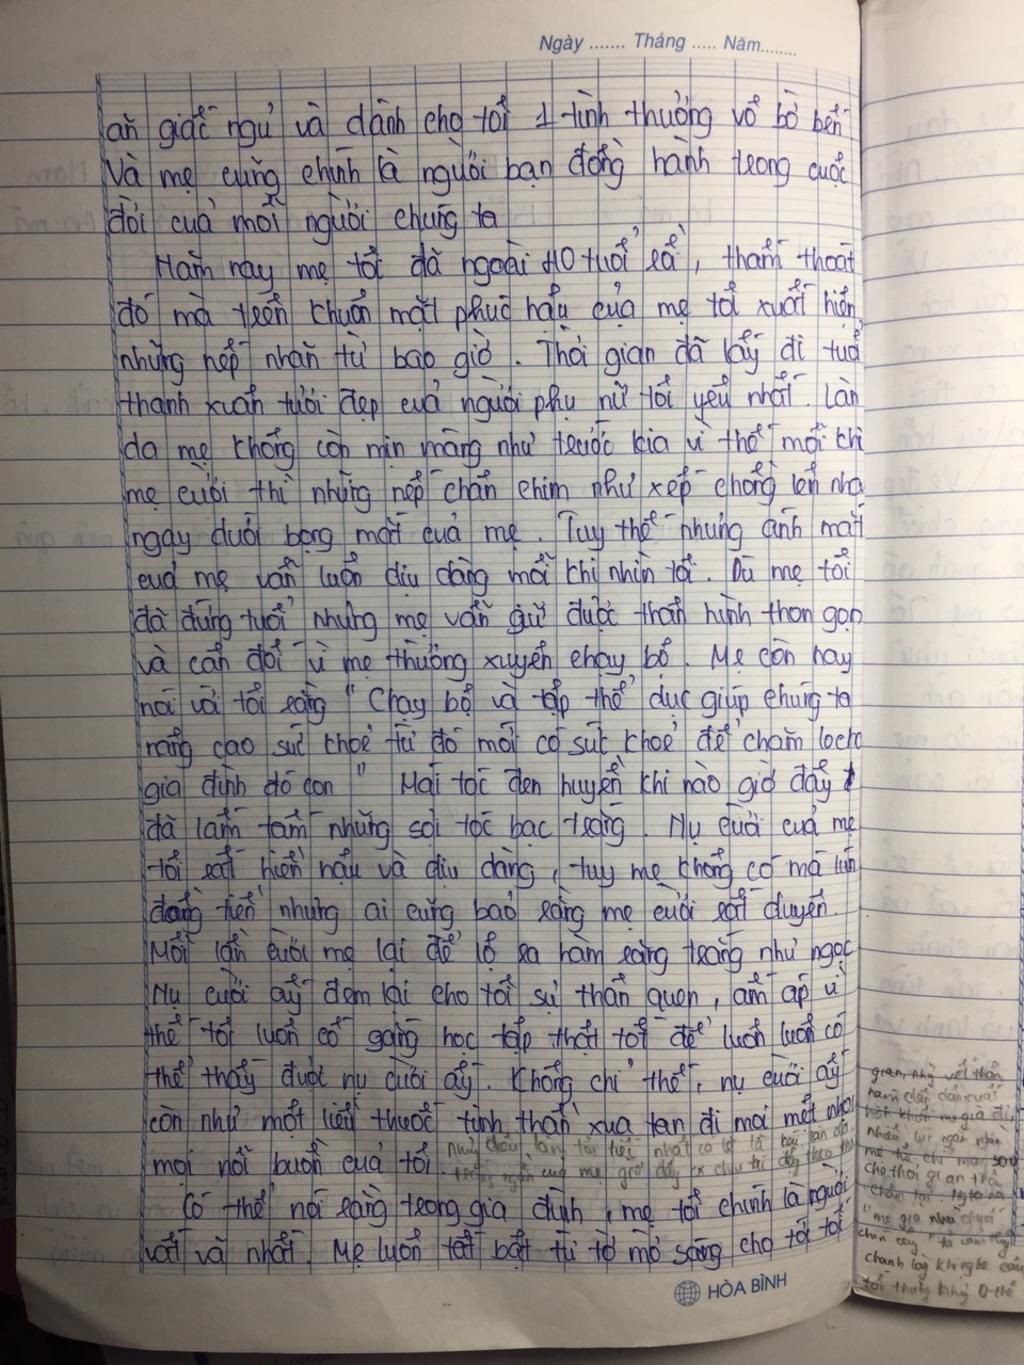 Ngày ....... Tháng ..... Năm........
ăn giấc ngủ và dành cho tôi 1 tình thương vô bờ bến
Và mẹ cũng chính là người bạn đồng hành trong cuộc
đời của mỗi người chúng ta
Năm nay mẹ tôi đã ngoài 40 tuổi rồi, thấm thoát
đó mà trên khuôn mặt phúc hậu của mẹ tôi xuất hiện
những nếp nhăn từ bao giờ. Thời gian đã lấy đi tuổi
thanh xuân tươi đẹp của người phụ nữ tôi yêu nhất. Làn
da mẹ không còn mịn màng như trước kia vì thế mỗi khi
mẹ cười thì những nếp chân chim như xếp chồng lên nha
ngay dưới bọng mắt của mẹ. Tuy thế nhưng ánh mắt
của mẹ vẫn luôn dịu dàng mỗi khi nhìn tôi. Dù mẹ tôi
đã đứng tuổi nhưng mẹ vẫn giữ được thân hình thon gọn
và cân đối vì mẹ thường xuyên chạy bộ. Mẹ còn hay
nói với tôi rằng " Chạy bộ và tập thể dục giúp chúng ta
nâng cao sức khoẻ từ đó mới có sức khoẻ để chăm lo cho
gia đình đó con " Mái tóc đen huyền khi nào giờ đây
đã lấm tấm những sợi tóc bạc trắng. Nụ cười của mẹ
tôi rất hiền hậu và dịu dàng, tuy mẹ không có má lúm
đồng tiền nhưng ai cũng bảo rằng mẹ cười rất duyên.
Mỗi lần cười mẹ lại để lộ ra hàm răng trắng như ngọc
Nụ cười ấy đem lại cho tôi sự thân quen, ấm áp vì
thế tôi luôn cố gắng học tập thật tốt để luôn luôn có
thể thấy được nụ cười ấy. Không chỉ thế, nụ cười ấy
còn như một liều thuốc tinh thần xua tan đi mọi mệt nhọc
mọi nỗi buồn của tôi.
Có thể nói rằng trong gia đình, mẹ tôi chính là người
vất vả nhất. Mẹ luôn tất bật từ tờ mờ sáng cho tới tối
HÒA BÌNH